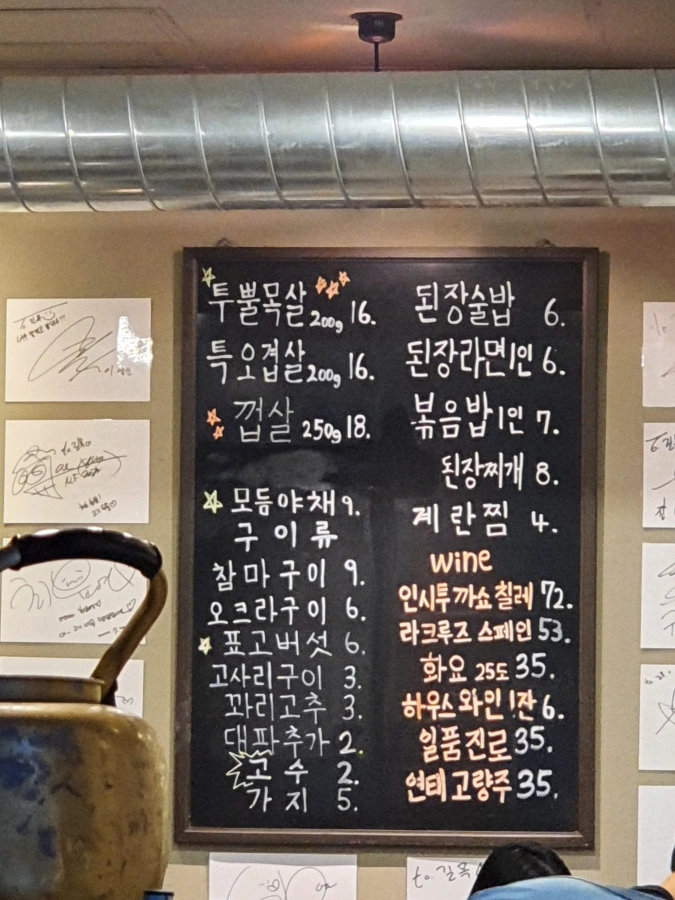 투뿔목살 200g 16.
특오겹살 200g 16.
껍살 250g 18.
모듬야채 9.
구이류
참마구이 9.
오크라구이 6.
표고버섯 6.
고사리구이 3.
꽈리고추 3.
대파추가 2.
고수 2.
가지 5.
된장술밥 6.
된장라면1인 6.
볶음밥1인 7.
된장찌개 8.
계란찜 4.
wine
인시투까쇼칠레 72.
라크루즈 스페인 53.
화요 25도 35.
하우스와인1잔 6.
일품진로 35.
연태고량주 35.
to. 길목